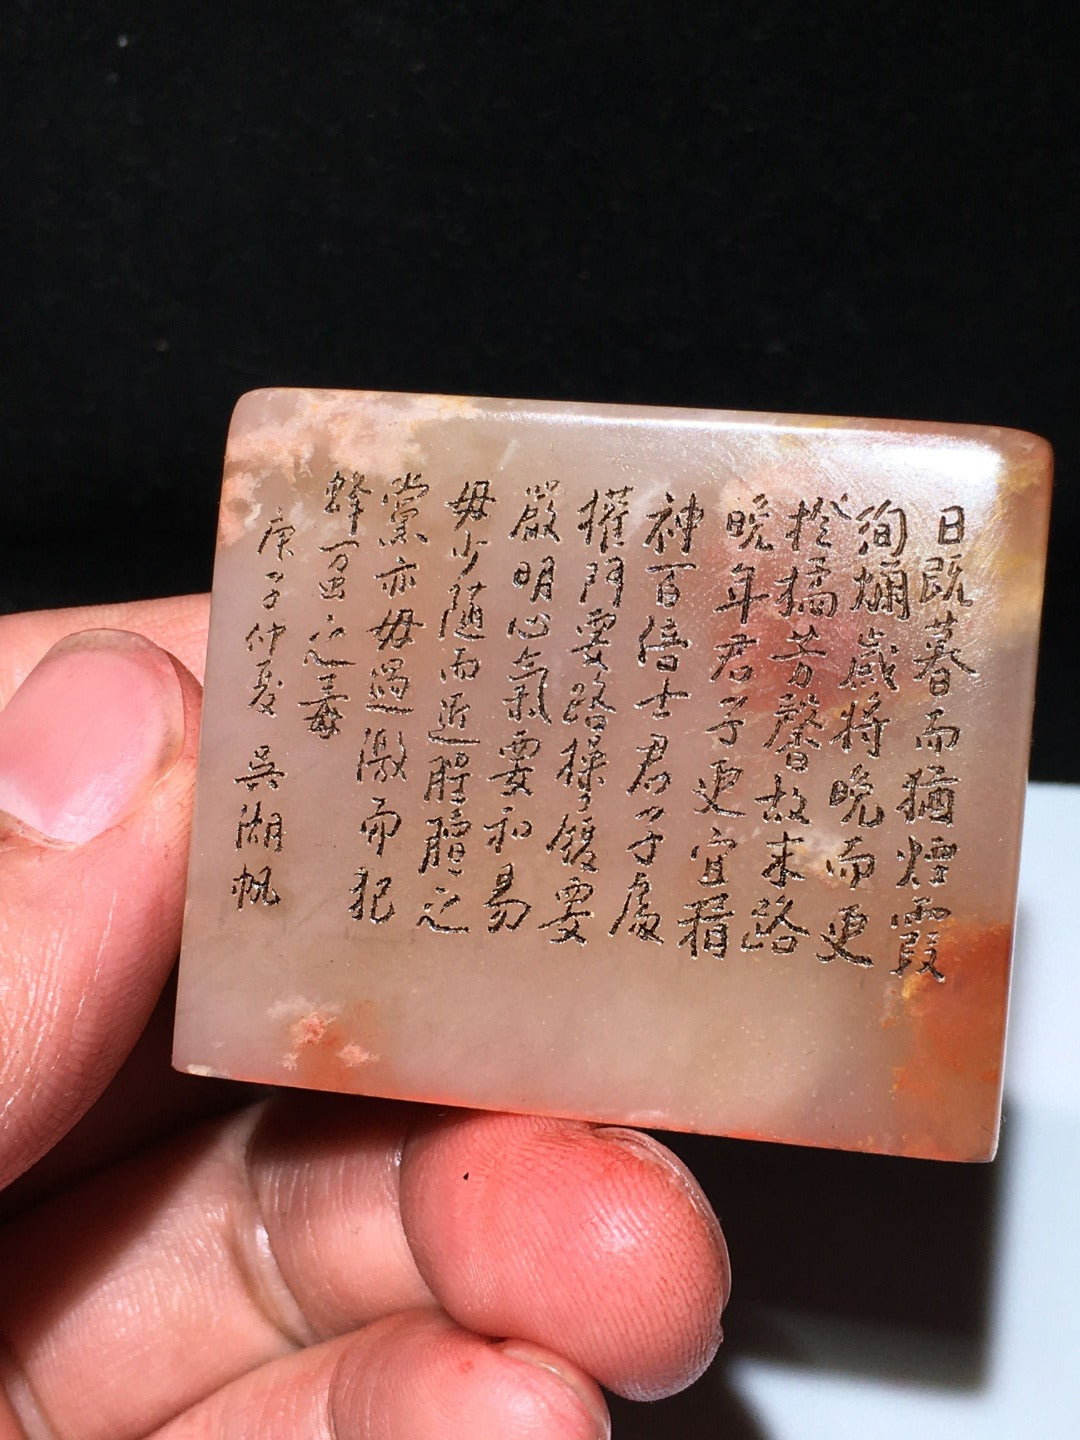 日既暮而猶煙霞
絢爛歲將晚而更
橙橘芳馨故末路
晚年君子更宜精
神百倍士君子處
權門要路操履要
嚴明心氣要和易
毋少隨而近腥膻之
黨亦毋過激而犯
蜂蠆之毒
庚子仲夏 吳湖帆